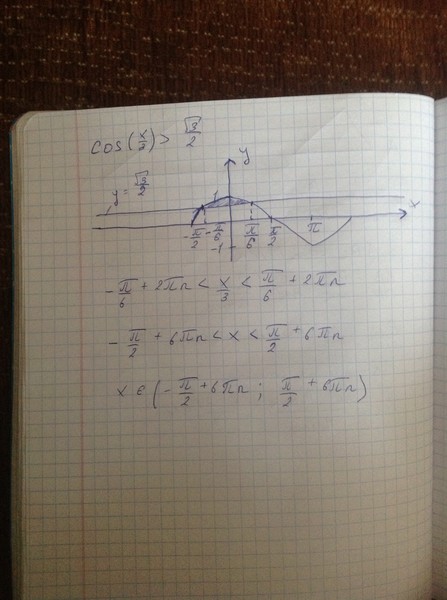 cos(x/3) > √3/2
y
y = √3/2
1
x
-π/2 -π/6 π/6 π/2 π
-1
-π/6 + 2πn < x/3 < π/6 + 2πn
-π/2 + 6πn < x < π/2 + 6πn
x ∈ (-π/2 + 6πn ; π/2 + 6πn)